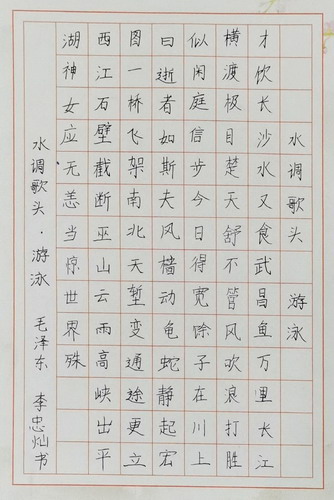 水调歌头 游泳
才饮长沙水又食武昌鱼万里长江
横渡极目楚天舒不管风吹浪打胜
似闲庭信步今日得宽馀子在川上
曰逝者如斯夫风樯动龟蛇静起宏
图一桥飞架南北天堑变通途更立
西江石壁截断巫山云雨高峡出平
湖神女应无恙当惊世界殊
水调歌头·游泳 毛泽东 李忠灿书